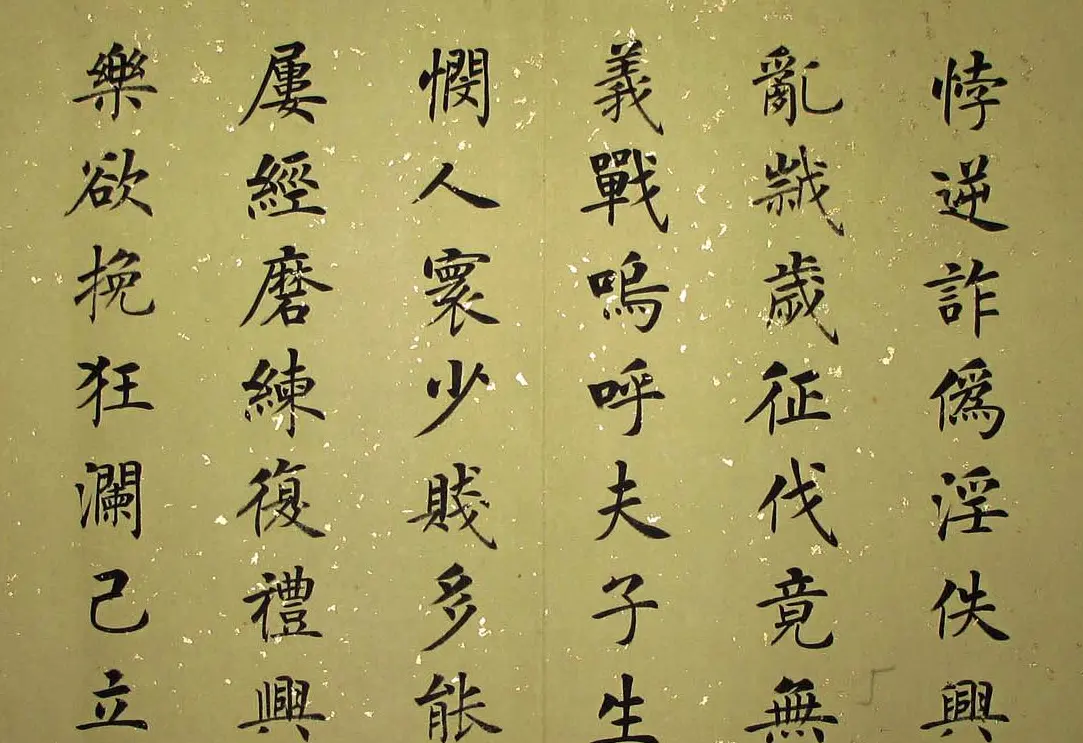 悖逆詐偽淫佚興
亂歲歲征伐竟無
義戰嗚呼夫子生
憫人寰少賤多能
屢經磨練復禮興
樂欲挽狂瀾己立